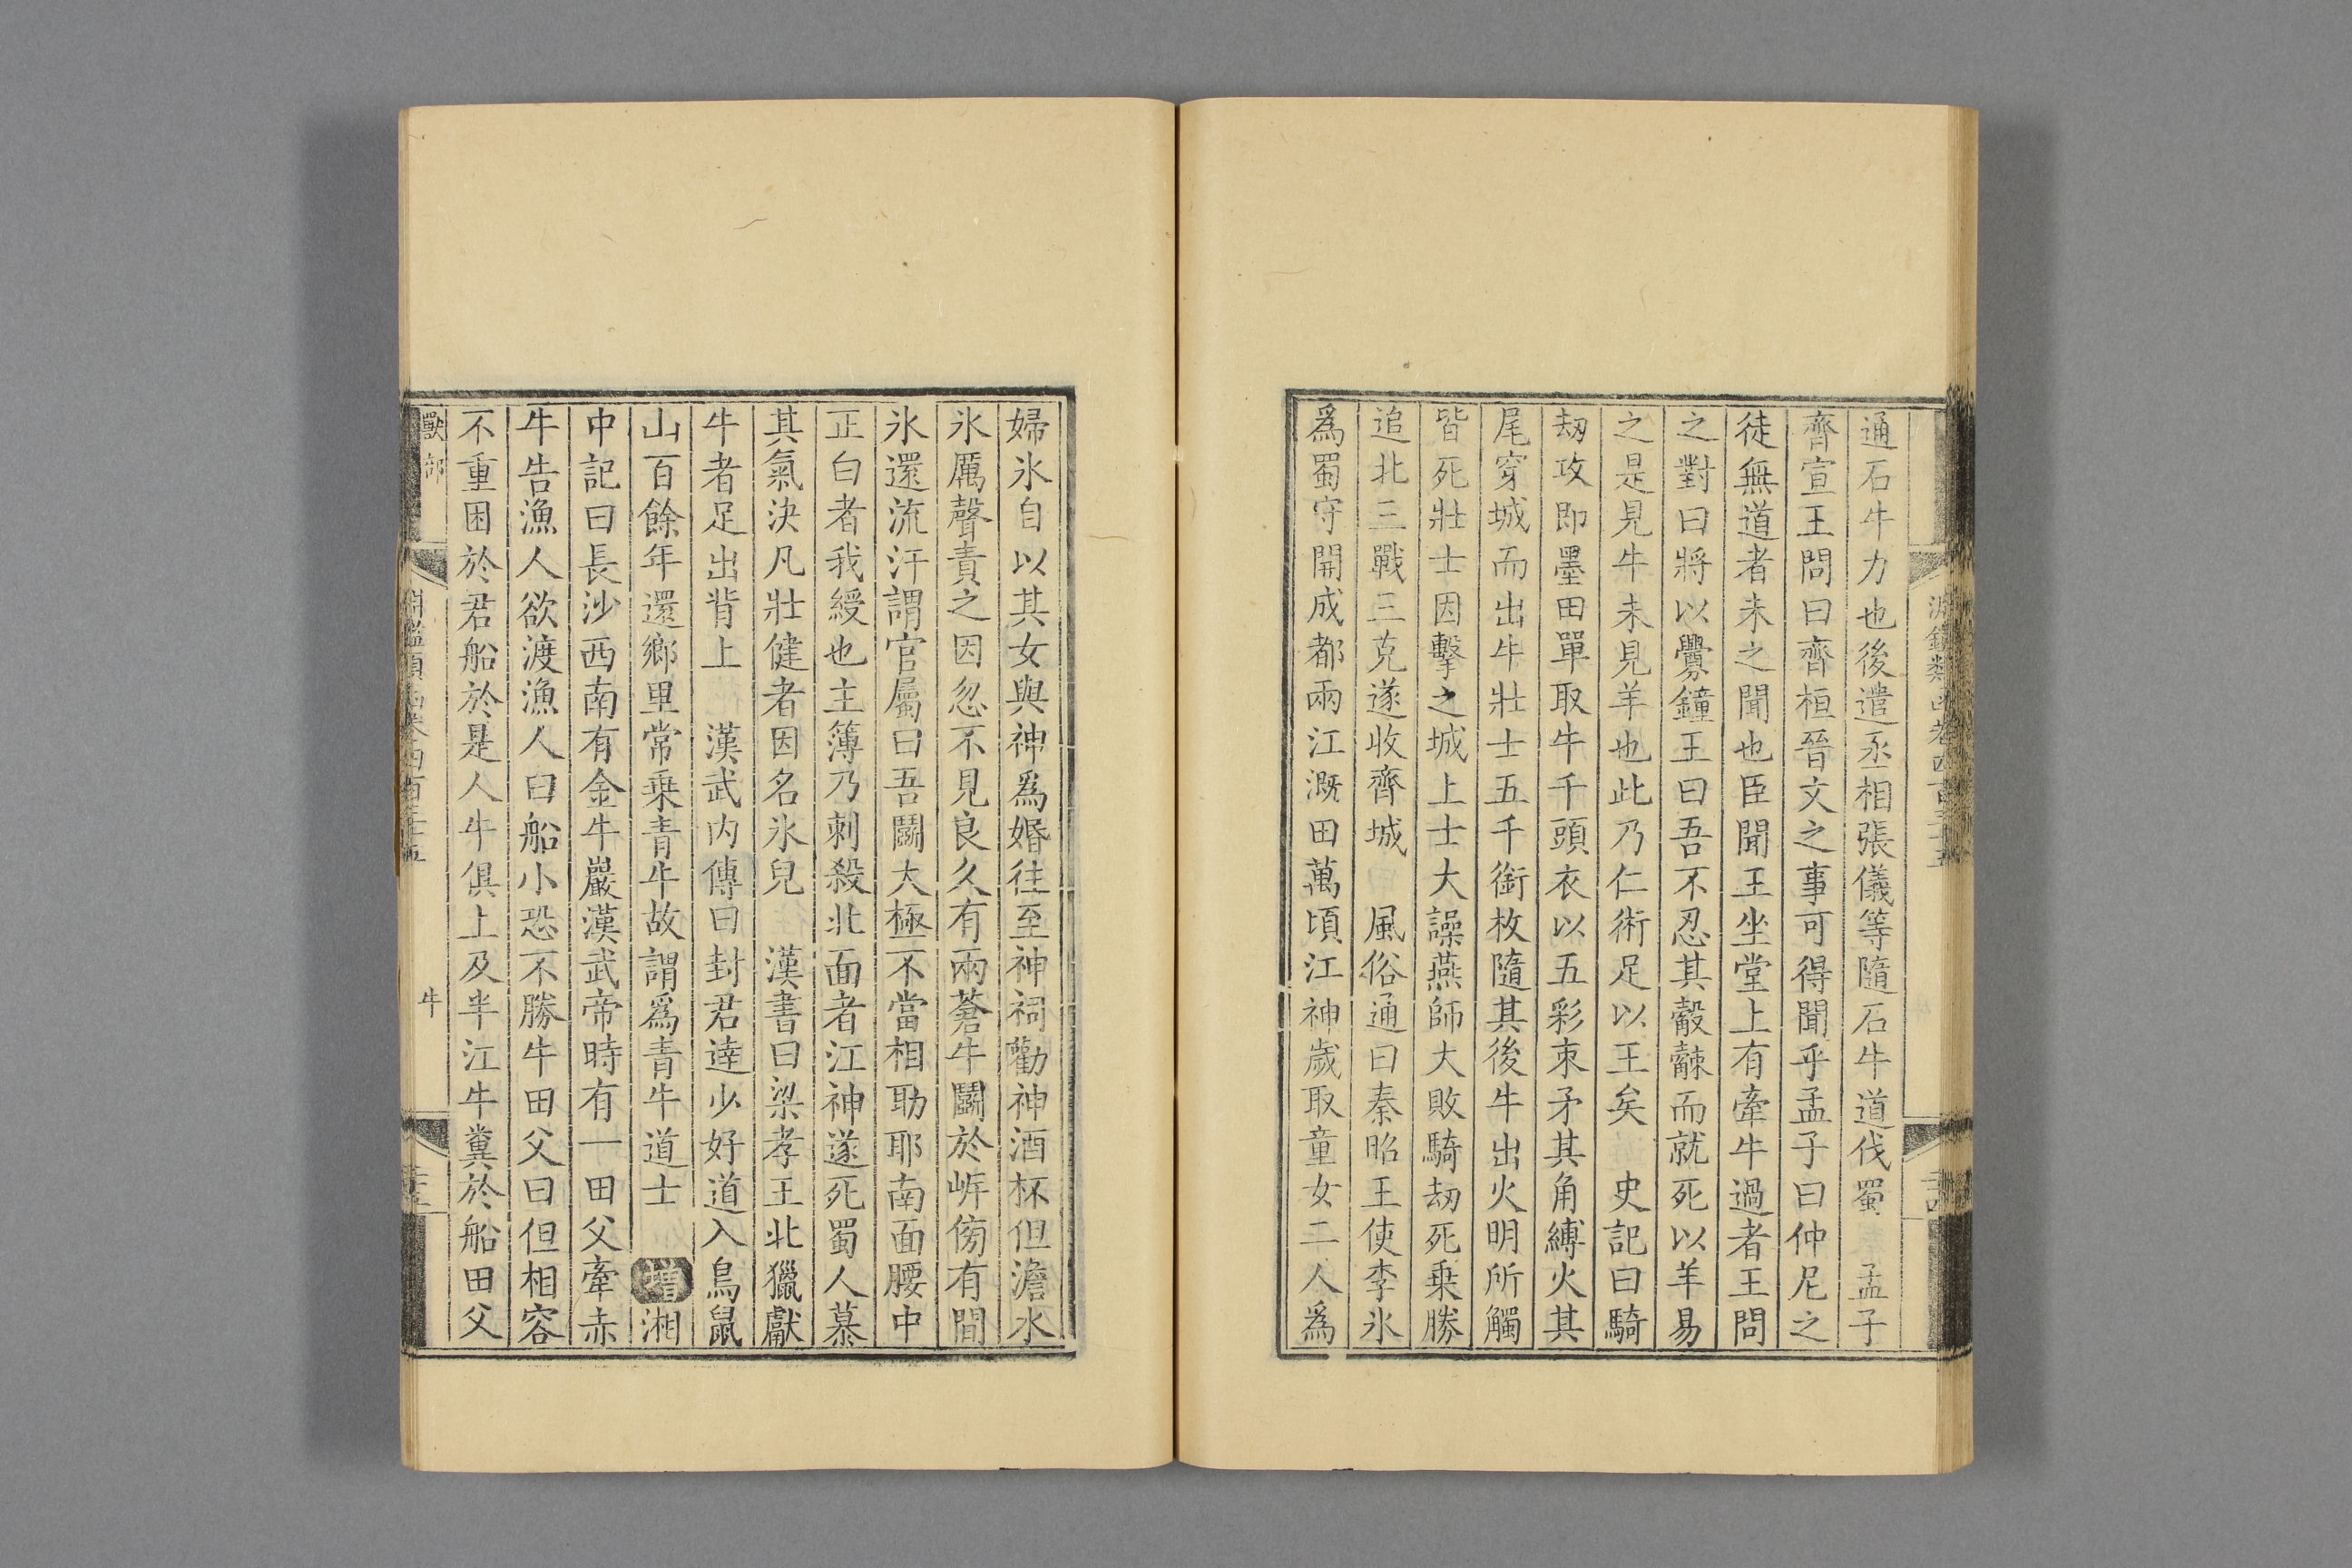 通石牛力也後遣丞相張儀等隨石牛道伐蜀　孟子
齊宣王問曰齊桓晉文之事可得聞乎孟子曰仲尼之
徒無道者未之聞也臣聞王坐堂上有牽牛過者王問
之對曰將以釁鐘王曰吾不忍其觳觫而就死以羊易
之是見牛未見羊也此乃仁術足以王矣　史記曰騎
劫攻即墨田單取牛千頭衣以五彩束矛其角縛火其
尾穿城而出牛壯士五千銜枚隨其後牛出火明所觸
皆死壯士因擊之城上士大譟燕師大敗騎劫死乗勝
追北三戰三克遂收齊城　風俗通曰秦昭王使李氷
爲蜀守開成都兩江溉田萬頃江神歲取童女二人爲
婦氷自以其女與神爲婚往至神祠勸神酒杯但澹水
氷厲聲責之因忽不見良久有兩蒼牛鬭於㟁傍有間
氷還流汗謂官屬曰吾鬭大極不當相助耶南面腰中
正白者我綬也主簿乃刺殺北面者江神遂死蜀人慕
其氣決凡壯健者因名氷兒　漢書曰梁孝王北獵獻
牛者足出背上　漢武内傳曰封君達少好道入鳥鼠
山百餘年還鄉里常乗青牛故謂爲青牛道士　增湘
中記曰長沙西南有金牛巖漢武帝時有一田父牽赤
牛告漁人欲渡漁人曰船小恐不勝牛田父曰但相容
不重困於君船於是人牛俱上及半江牛糞於船田父
獸部　淵鑑類函卷四百三十五　牛